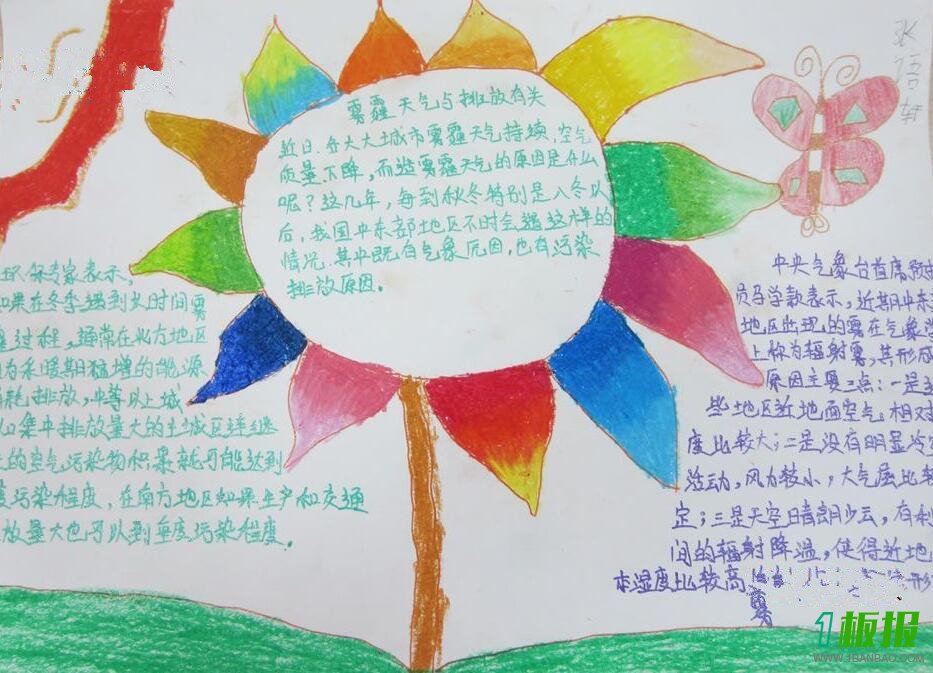 雾霾天气与排放有关
近日.各大大城市雾霾天气持续,空气
质量下降,而造雾霾天气的原因是什么
呢?这几年,每到秋冬特别是入冬以
后,我国中东部地区不时会遇这样的
情况.其中既有气象原因,也有污染
排放原因。
张语轩
环保专家表示,
如果在冬季遇到长时间雾
霾过程,通常在北方地区
因为采暖期猛增的能源
消耗排放,中等以上城
集中排放量大的主城区连续
的空气污染物积累就可能达到
度污染程度,在南方地区如果生产和交通
放量大也可以到重度污染程度。
中央气象台首席预报
员马学款表示,近期中东
地区出现的雾在气象学
上称为辐射雾,其形成
原因主要三点:一是这
些地区近地面空气相对
度比较大;二是没有明显冷空
活动,风力较小,大气层比较
定;三是天空晴朗少云,有利
间的辐射降温,使得近地
本湿度比较高
形
雾
1板报
WWW.1BANBAO.COM